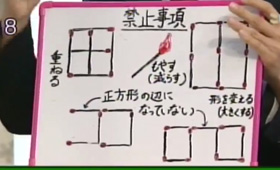 8
禁止事項
重ねる
もやす
(減らす)
形を変える
(大きくする)
正方形の辺に
なっていない